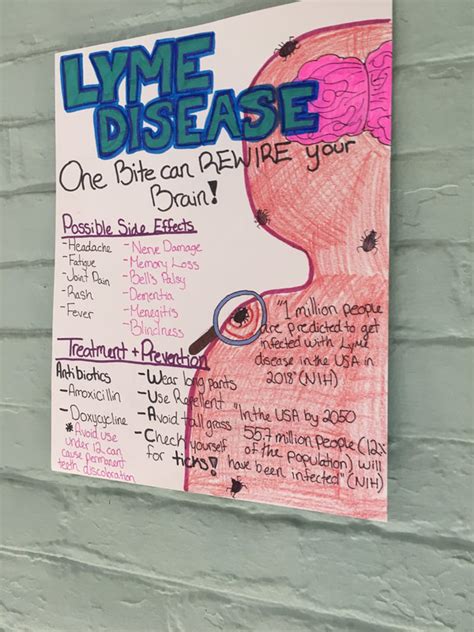 LYME
DISEASE
One Bite can REWIRE your
Brain!
Possible Side Effects
-Headache
-Fatigue
-Joint Pain
-Rash
-Fever
-Nerve Damage
-Memory Loss
-Bell's Palsy
-Dementia
-Menegitis
-Blindness
"1 million people
are predicted to get
infected with Lyme
disease in the USA in
2018" (NIH)
Treatment + Prevention
Antibiotics
-Amoxicillin
-Doxycycline
*Avoid use
under 12 can
cause permanent
teeth discoloration
-Wear long pants
-Use Repellent
-Avoid tall grass
-Check yourself
for ticks!
"In the USA by 2050
55.7 million people (12%
of the population) will
have been infected" (NIH)